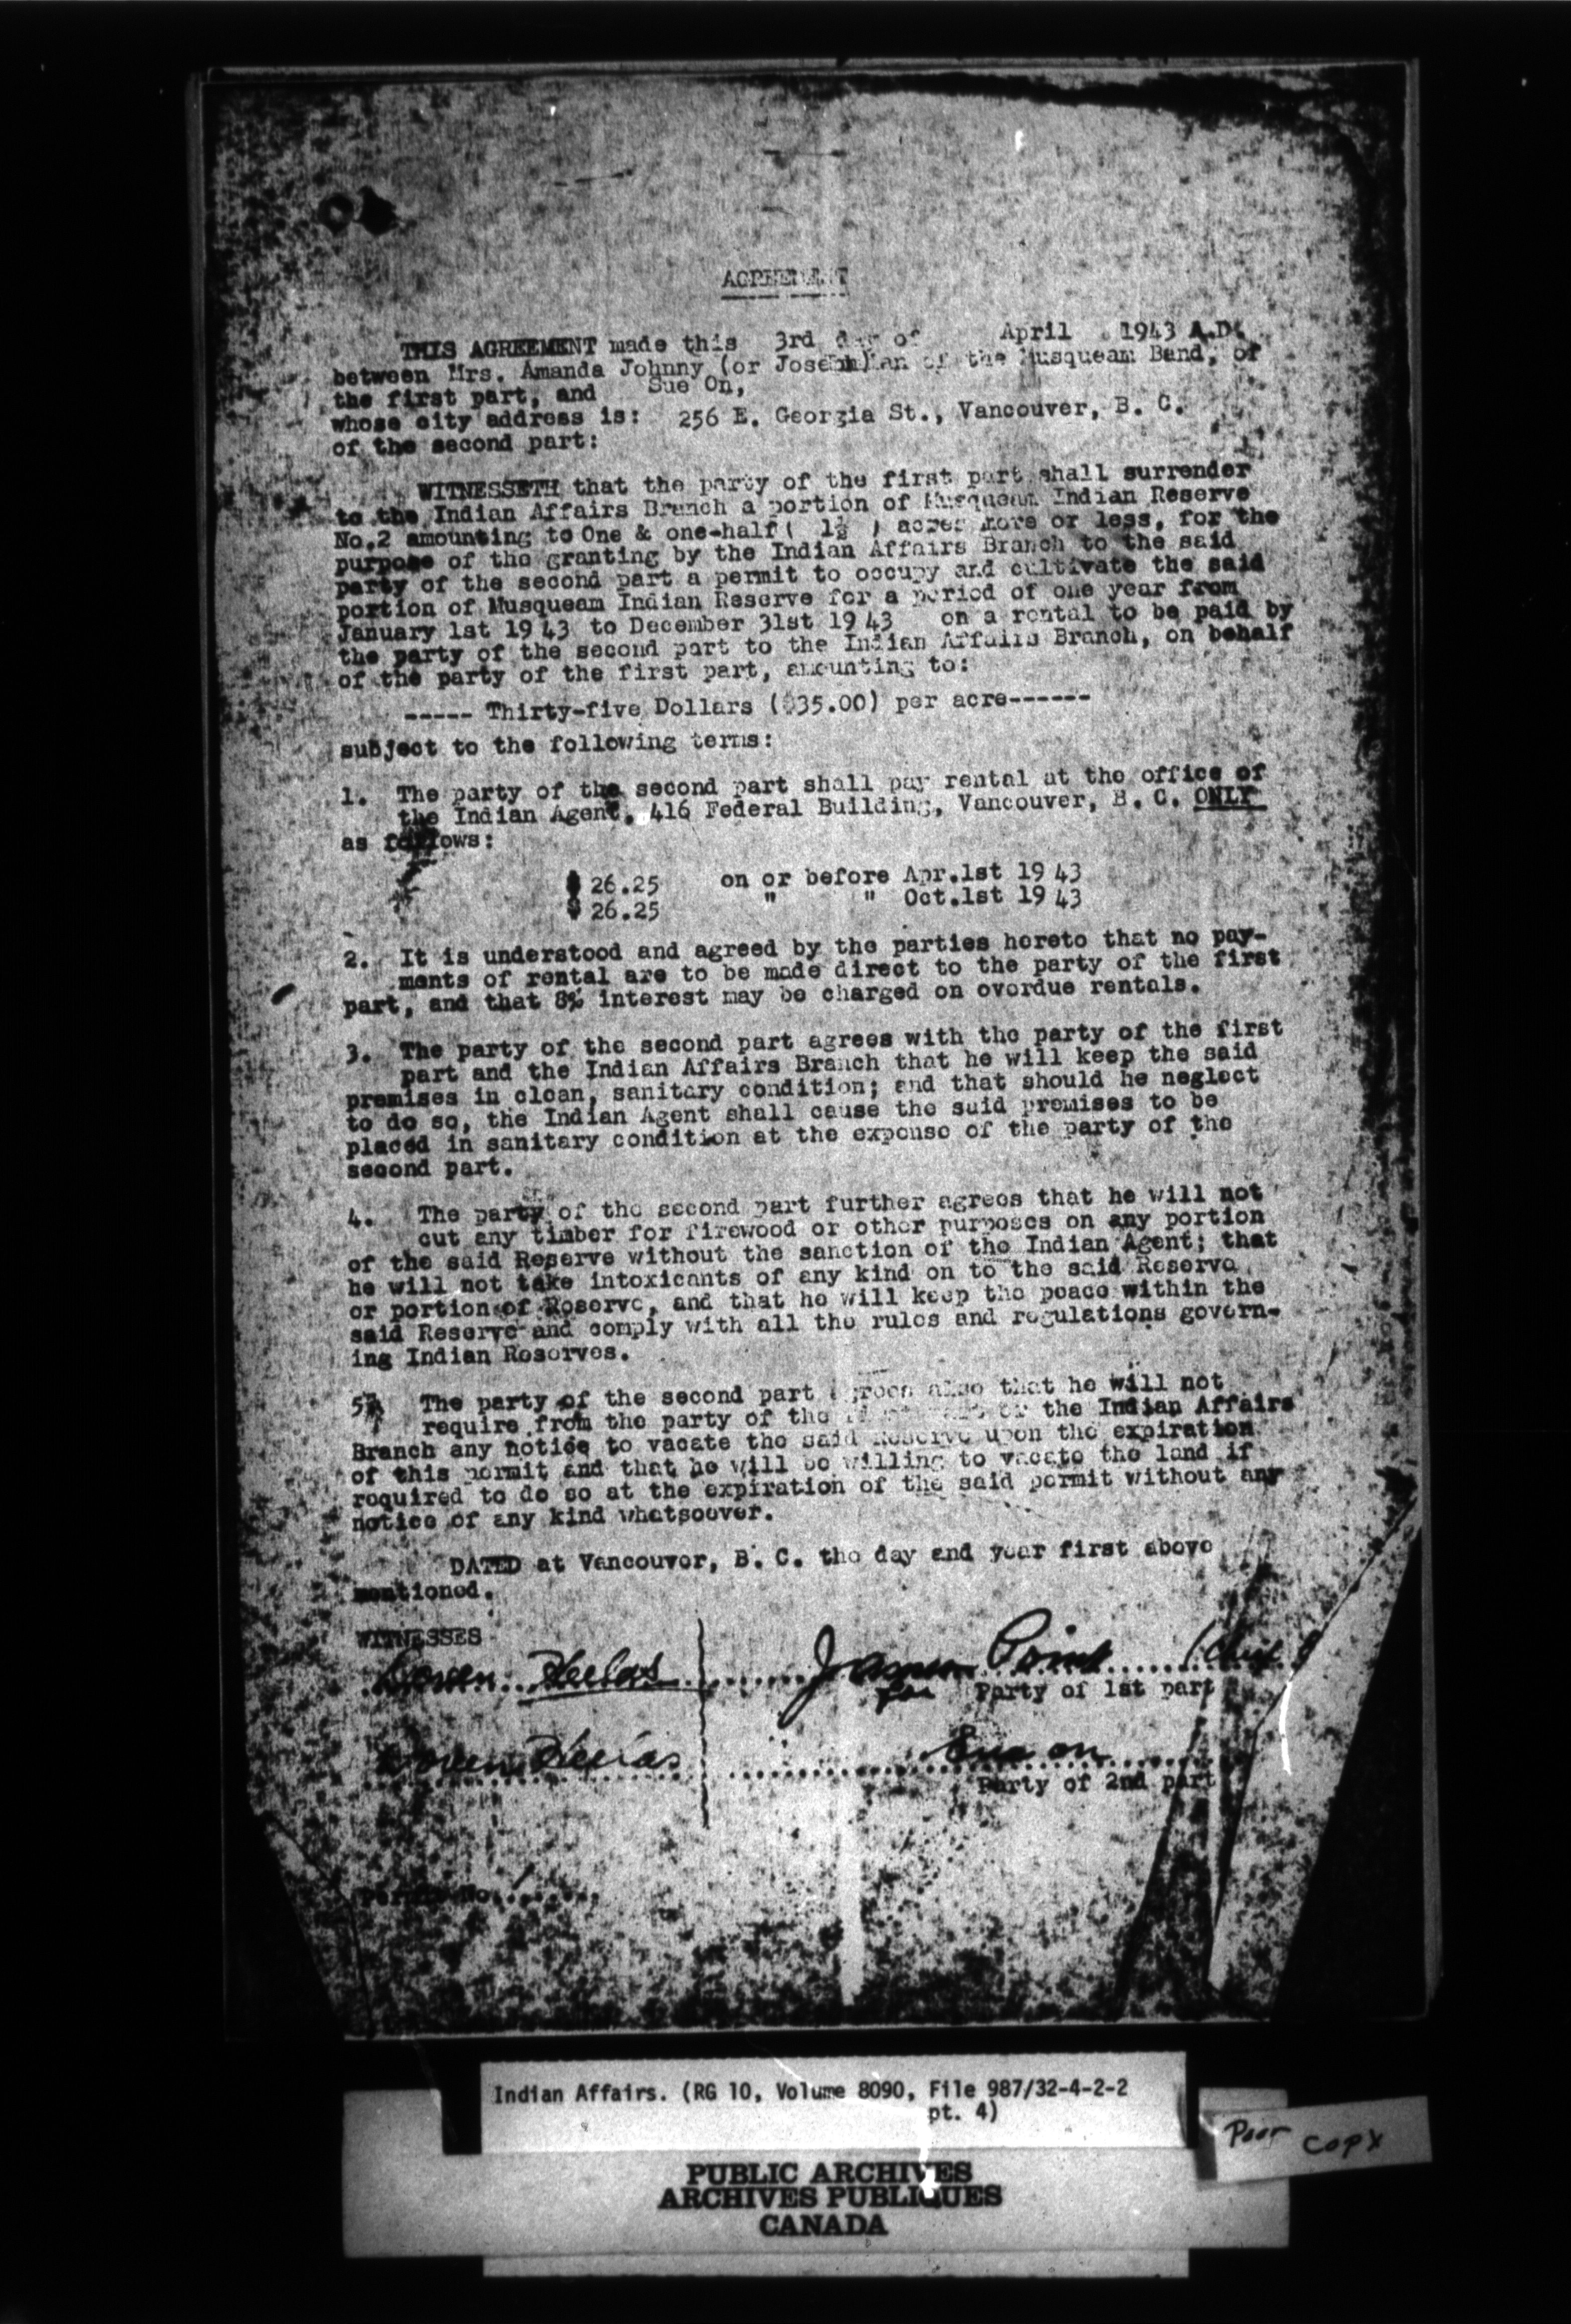 AGREEMENT
THIS AGREEMENT made this 3rd day of April 1943 A.D.
between Mrs. Amanda Johnny (or Joseph) an of the Musqueam Band, of
the first part, and Sue On,
whose city address is: 256 E. Georgia St., Vancouver, B. C.
of the second part:
WITNESSETH that the party of the first part shall surrender
to the Indian Affairs Branch a portion of Musqueam Indian Reserve
No.2 amounting to One & one-half ( 1½ ) acres more or less, for the
purpose of the granting by the Indian Affairs Branch to the said
party of the second part a permit to occupy and cultivate the said
portion of Musqueam Indian Reserve for a period of one year from
January 1st 1943 to December 31st 1943 on a rental to be paid by
the party of the second part to the Indian Affairs Branch, on behalf
of the party of the first part, amounting to:
----- Thirty-five Dollars ($35.00) per acre------
subject to the following terms:
1. The party of the second part shall pay rental at the office of
the Indian Agent, 416 Federal Building, Vancouver, B. C. ONLY
as follows:
$ 26.25 on or before Apr.1st 1943
$ 26.25 " " Oct.1st 1943
2. It is understood and agreed by the parties hereto that no pay-
ments of rental are to be made direct to the party of the first
part, and that 8% interest may be charged on overdue rentals.
3. The party of the second part agrees with the party of the first
part and the Indian Affairs Branch that he will keep the said
premises in clean, sanitary condition; and that should he neglect
to do so, the Indian Agent shall cause the said premises to be
placed in sanitary condition at the expense of the party of the
second part.
4. The party of the second part further agrees that he will not
cut any timber for firewood or other purposes on any portion
of the said Reserve without the sanction of the Indian Agent; that
he will not take intoxicants of any kind on to the said Reserve
or portion of Reserve, and that he will keep the peace within the
said Reserve and comply with all the rules and regulations govern-
ing Indian Reserves.
5. The party of the second part agrees also that he will not
require from the party of the first part or the Indian Affairs
Branch any notice to vacate the said Reserve upon the expiration
of this permit and that he will be willing to vacate the land if
required to do so at the expiration of the said permit without any
notice of any kind whatsoever.
DATED at Vancouver, B. C. the day and year first above
mentioned.
WITNESSES
James Point (Chief)
for Party of 1st part
Sue on
Party of 2nd part
Permit No.
Indian Affairs. (RG 10, Volume 8090, File 987/32-4-2-2
pt. 4)
Poor Copy
PUBLIC ARCHIVES
ARCHIVES PUBLIQUES
CANADA